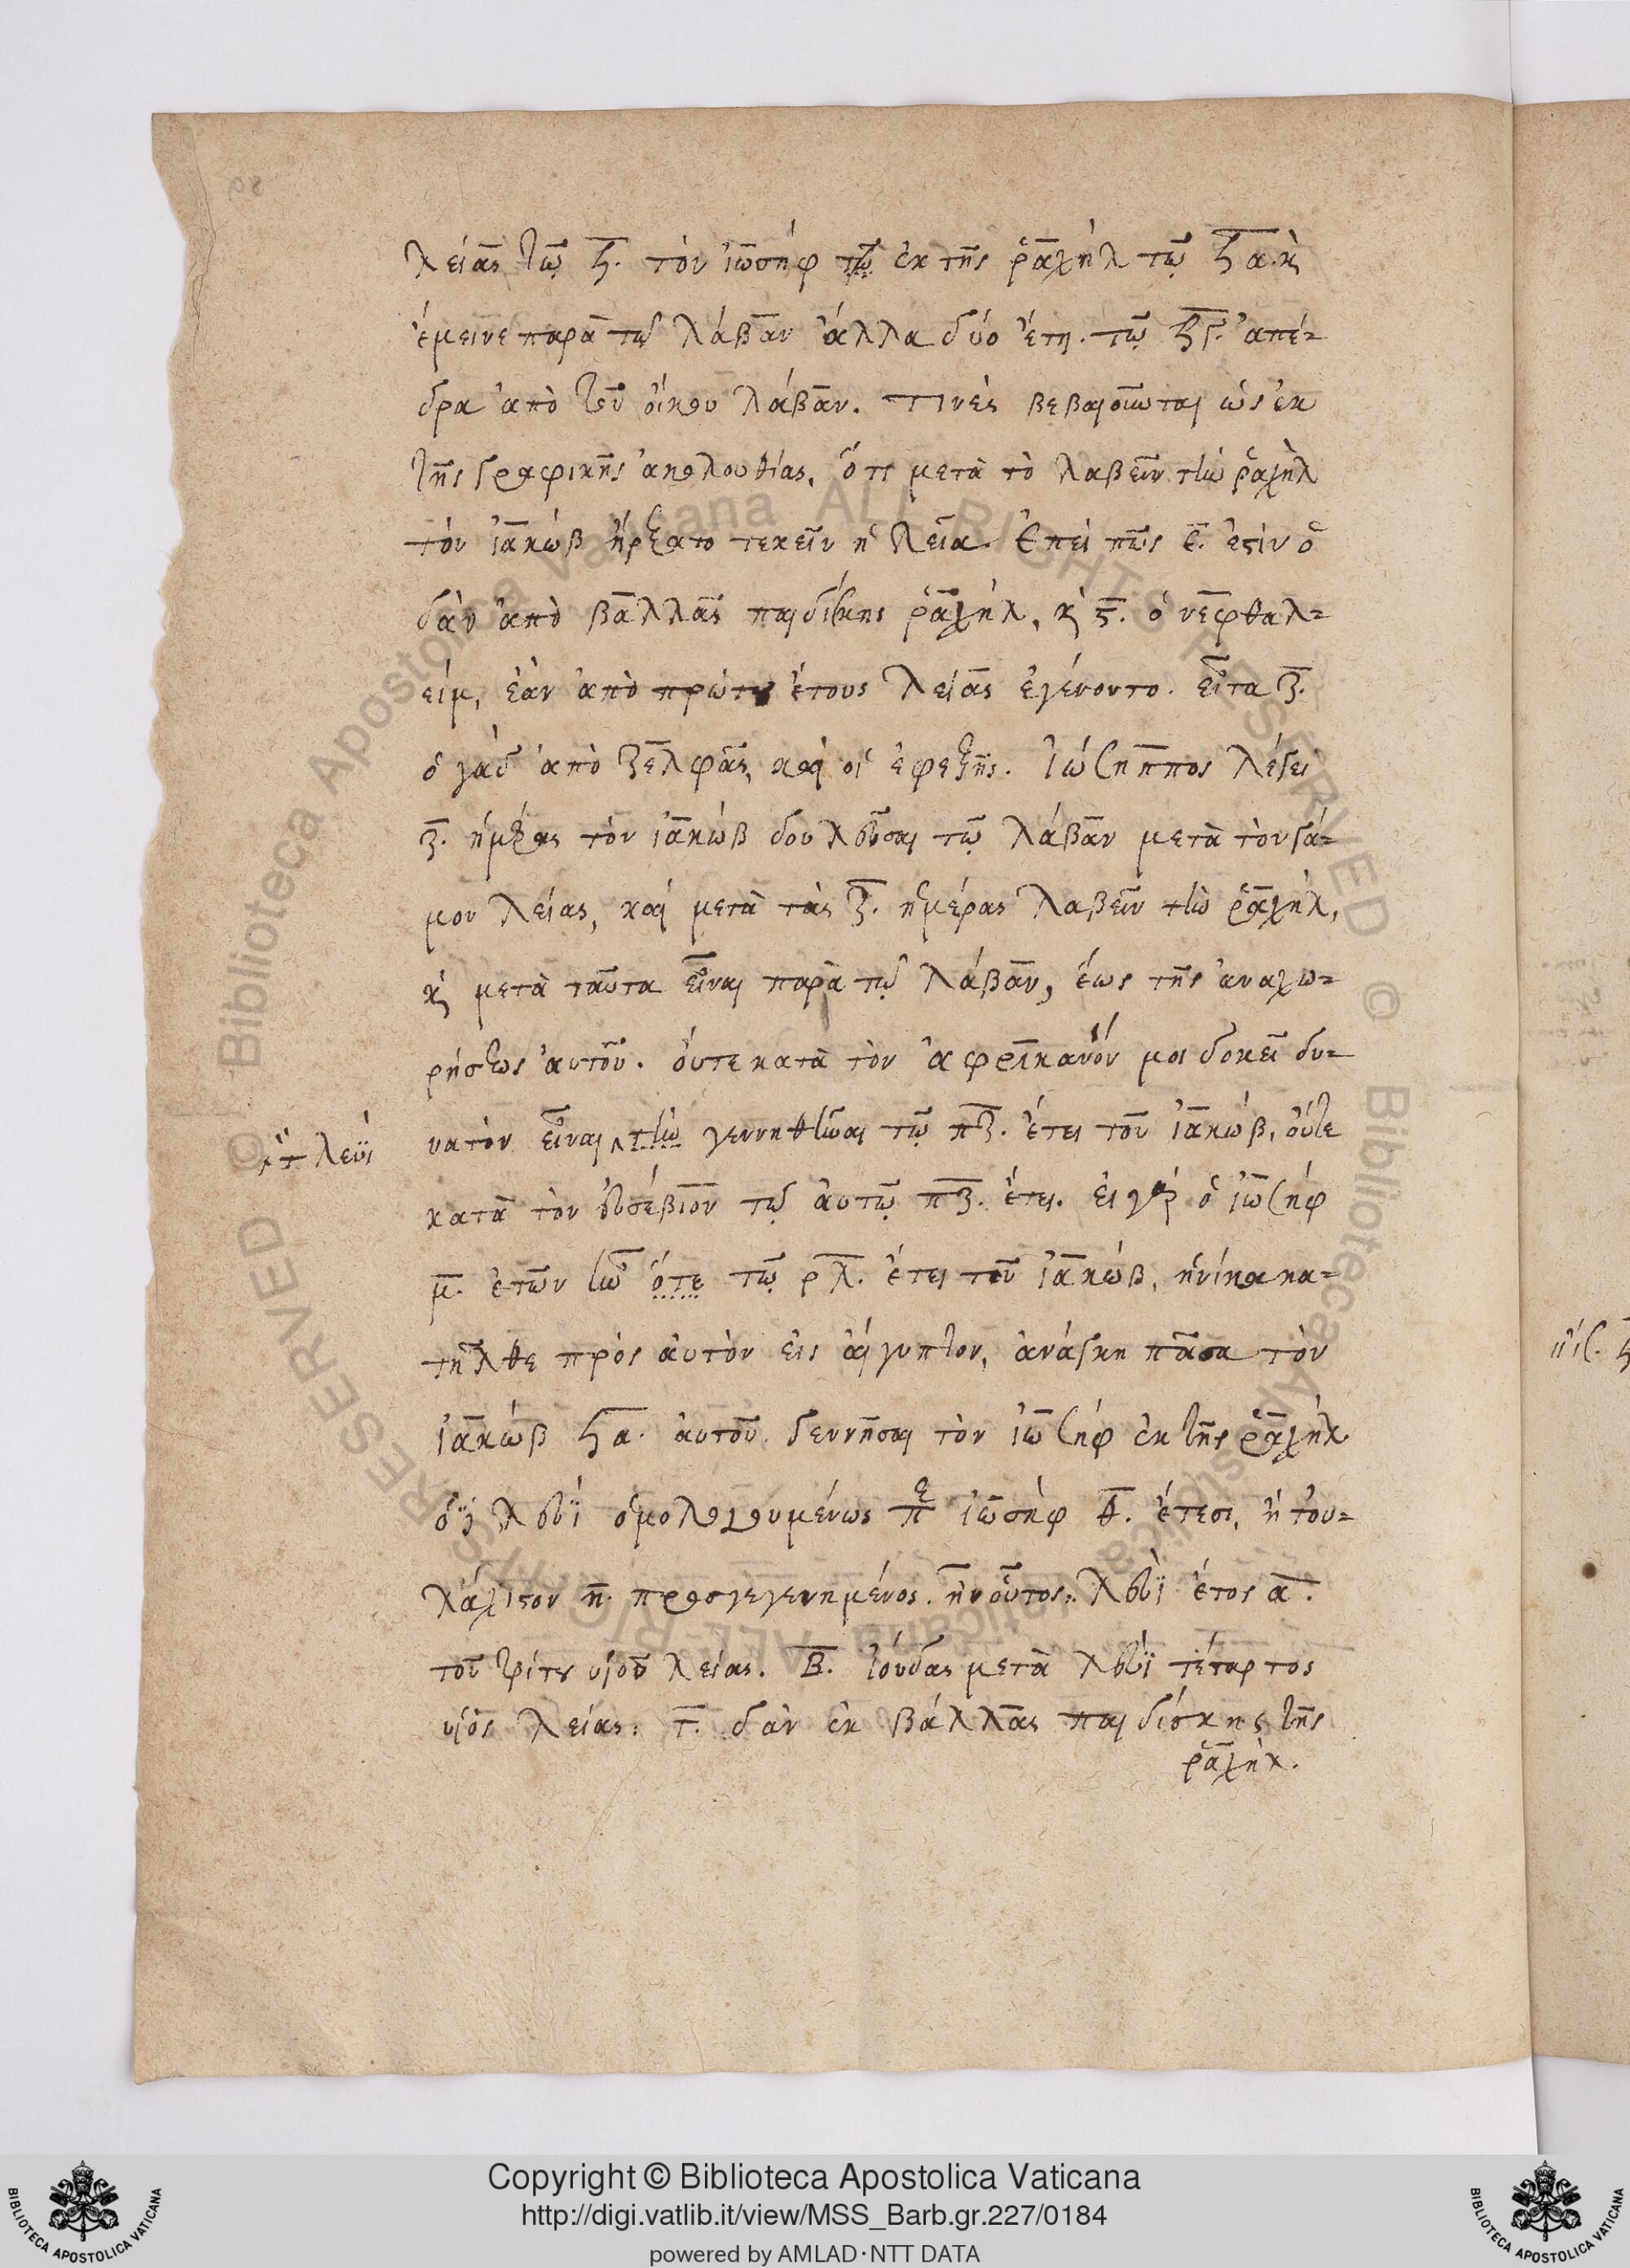 λείας τῷ ϟ. τὸν ἰωσήφ τῷ ἐκ τῆς ῥαχήλ τῷ ϟα. κỳ
ἔμεινε παρὰ τῷ λάβαν ἄλλα δύο ἔτη. τῷ ϟγ. ἀπέ-
δρα ἀπὸ τοῦ οἴκου λάβαν. τινὲς βεβαιοῦνται ὡς ἐκ
τῆς γραφικῆς ἀκολουθίας, ὅτι μετὰ τὸ λαβεῖν τὴν ῥαχὴλ
τὸν ἰακώβ ἤρξατο τεκεῖν ἡ λεία. ἐπεὶ πῶς ε. ἐστὶν ὁ
δὰν ἀπὸ βαλλᾶς παιδίσκης ῥαχήλ, κὶ ϛ. ὁ νεφθαλ-
είμ, ἐὰν ἀπὸ πρώτου ἔτους λείας ἐγένοντο. εἶτα ζ.
ὁ γὰδ ἀπὸ ζελφᾶς, καὶ οἱ ἐφεξῆς. ἰώσηππος λέγει
ζ. ἡμέρας τὸν ἰακώβ δουλεῦσαι τῷ λάβαν μετὰ τὸν γά-
μον λείας, καὶ μετὰ τὰς ζ. ἡμέρας λαβεῖν τὴν ῥαχήλ,
κὶ μετὰ ταῦτα εἶναι παρὰ τῷ λάβαν, ἕως τῆς ἀναχω-
ρήσεως αὐτοῦ. οὔτε κατὰ τὸν ἀφρικανόν μοι δοκεῖ δυ-
νατὸν εἶναι τὴν γεννηθῆναι τῷ πζ. ἔτει τοῦ ἰακώβ, οὔτε
τ λευὶ
κατὰ τὸν εὐσέβιον τῷ αὐτῷ πζ. ἔτει. εἰ γὰρ ὁ ἰωσήφ
μ. ἐτῶν ἦν ὅτε τῷ ρλ. ἔτει τοῦ ἰακώβ, ἡνίκα κα-
τῆλθε πρὸς αὐτὸν εἰς αἴγυπτον, ἀνάγκη πᾶσα τὸν
ἰακώβ ϟα. αὐτοῦ γεννῆσαι τὸν ἰωσήφ ἐκ τῆς ῥαχήλ
ὁ λευὶ ὁμολογουμένως π ἰωσὴφ θ. ἔτεσι, ἢ τοὐ-
λάχιστον η. προσγεγενημένος. ἦν οὗτος. λευὶ ἔτος α.
τοῦ τρίτου υἱοῦ λείας. β. ἰούδας μετὰ λευὶ τέταρτος
υἱὸς λείας. γ. δὰν ἐκ βάλλας παιδίσκης τῆς
ῥαχήλ.
Copyright © Biblioteca Apostolica Vaticana
http://digi.vatlib.it/view/MSS_Barb.gr.227/0184
powered by AMLAD·NTT DATA